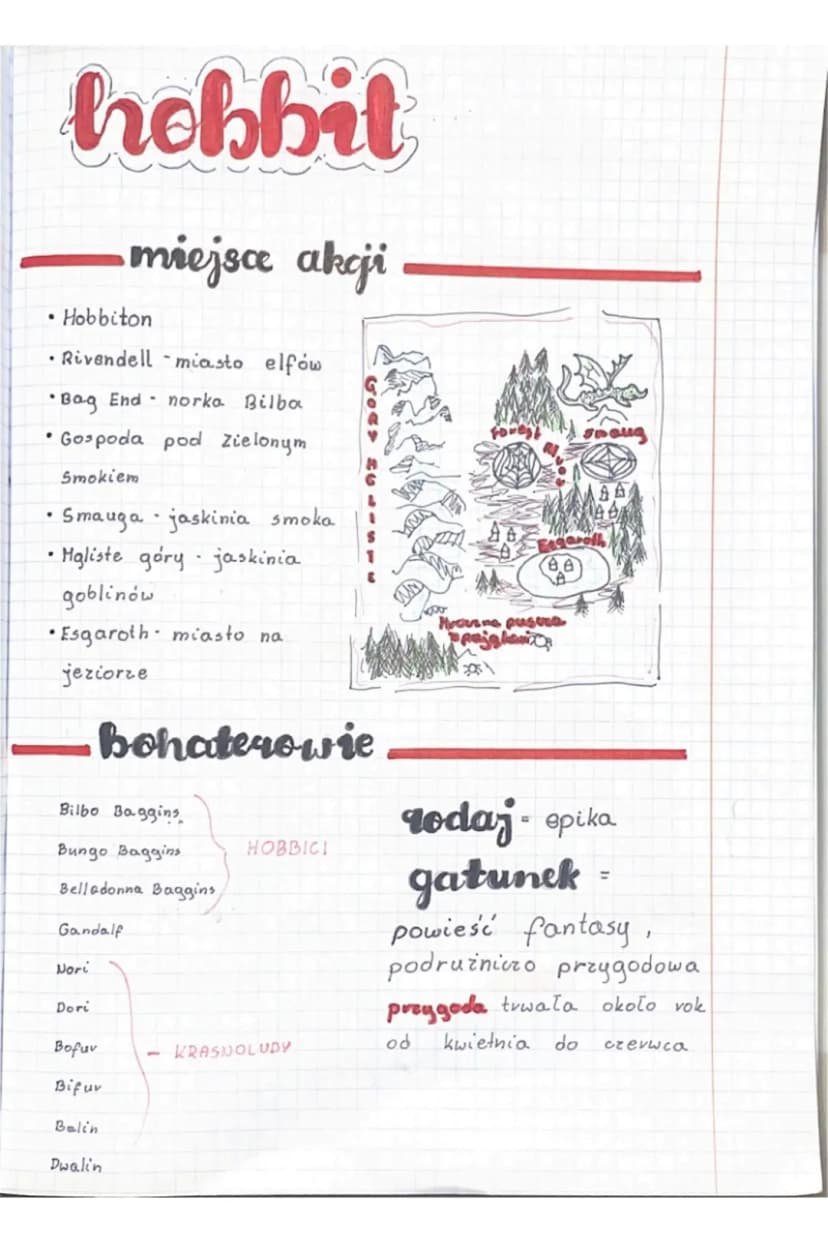 hobbit
miejsce akcji
• Hobbiton
• Rivendell - miasto elfów
• Bag End - norka Bilba
• Gospoda pod Zielonym
Smokiem
• Smauga - jaskinia smoka
• Mgliste góry - jaskinia
goblinów
• Esgaroth - miasto na
jeziorze
GÓRY MGLISTE
Smaug
Esgaroth
Mroczna puszcza
z pająkami
bohaterowie
Bilbo Baggins
Bungo Baggins
Belladonna Baggins
HOBBICI
Gandalf
Nori
Dori
Bofur
Bifur
Balin
Dwalin
- KRASNOLUDY
rodaj = epika
gatunek =
powieść fantasy,
podrużniczo przygodowa
przygoda trwała około rok
od kwietnia do czerwca